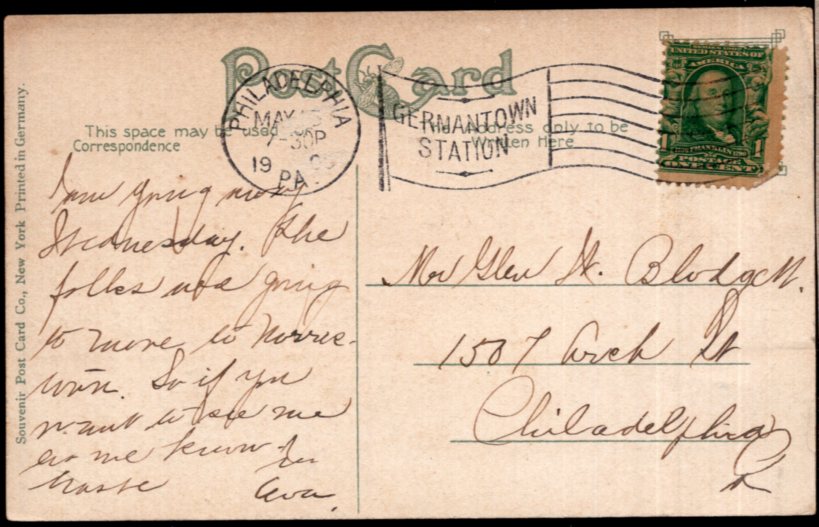 Post Card
This space may be used
Correspondence
The Address only to be
Written Here
PHILADELPHIA
MAY
7-30P
19
PA.
GERMANTOWN
STATION
UNITED STATES OF
AMERICA
FRANKLIN
POSTAGE
1 1
ONE CENT
I am going away
Wednesday. The
folks are going
to move to Norris-
town. So if you
want to see me
let me know. In
haste Ava.
Mr Glen W. Blodgett.
1507 Arch St
Philadelphia
Souvenir Post Card Co., New York Printed in Germany.